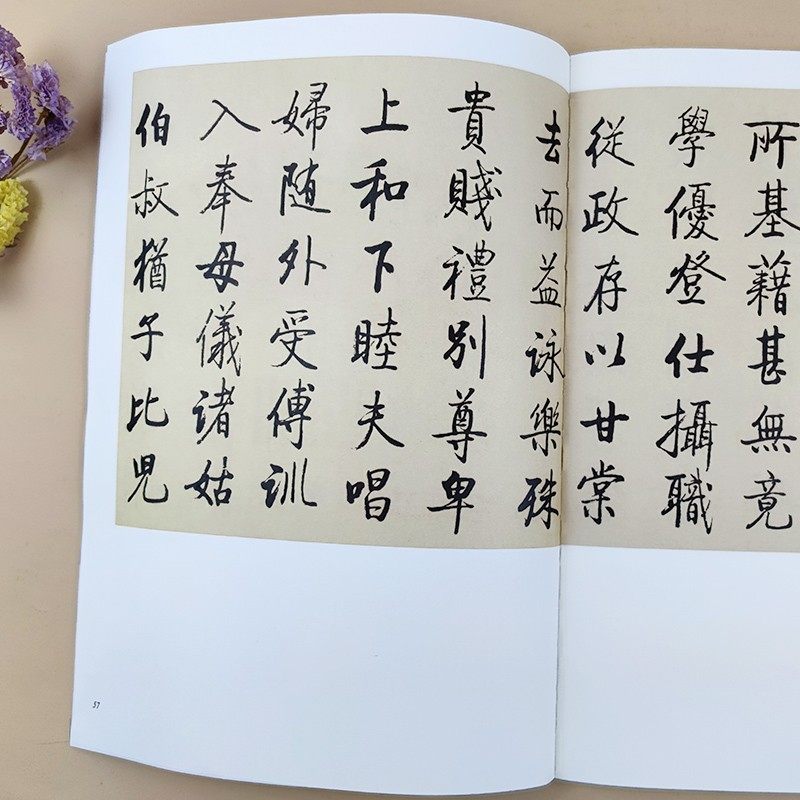 所基藉甚無竟
學優登仕攝職
從政存以甘棠
去而益詠樂殊
貴賤禮別尊卑
上和下睦夫唱
婦随外受傅訓
入奉母儀諸姑
伯叔猶子比兒
57